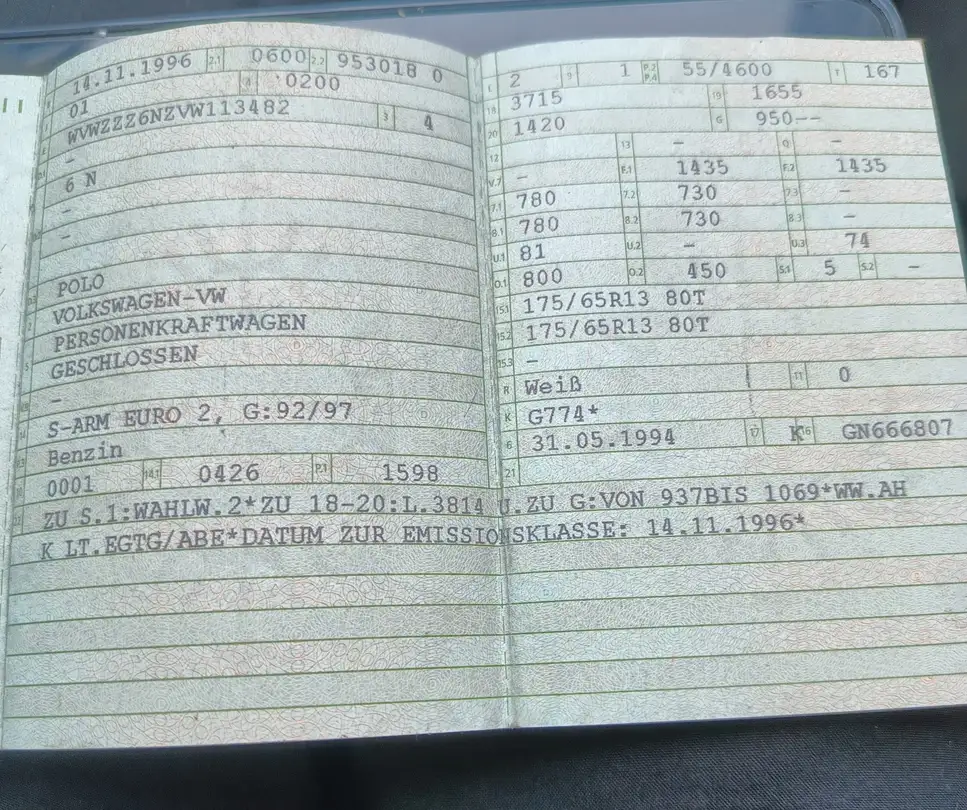 14.11.1996 2.1 0600 2.2 953018 0
01 4 0200
WVWZZZ6NZVW113482 3 4
-
6 N
-
-
POLO
VOLKSWAGEN-VW
PERSONENKRAFTWAGEN
GESCHLOSSEN
-
S-ARM EURO 2, G:92/97
Benzin
0001 14.1 0426 P.1 1598
L 2 9 1 P.2 P.4 55/4600 T 167
18 3715 19 1655
20 1420 G 950--
12 - 13 - Q -
V.7 - F.1 1435 F.2 1435
7.1 780 7.2 730 7.3 -
8.1 780 8.2 730 8.3 -
U.1 81 U.2 - U.3 74
O.1 800 O.2 450 S.1 5 S.2 -
15.1 175/65R13 80T
15.2 175/65R13 80T
15.3 -
R Weiß 11 0
K G774*
6 31.05.1994 17 K 16 GN666807
21
22 ZU S.1:WAHLW.2*ZU 18-20:L.3814 U.ZU G:VON 937BIS 1069*WW.AH
K LT.EGTG/ABE*DATUM ZUR EMISSIONSKLASSE: 14.11.1996*